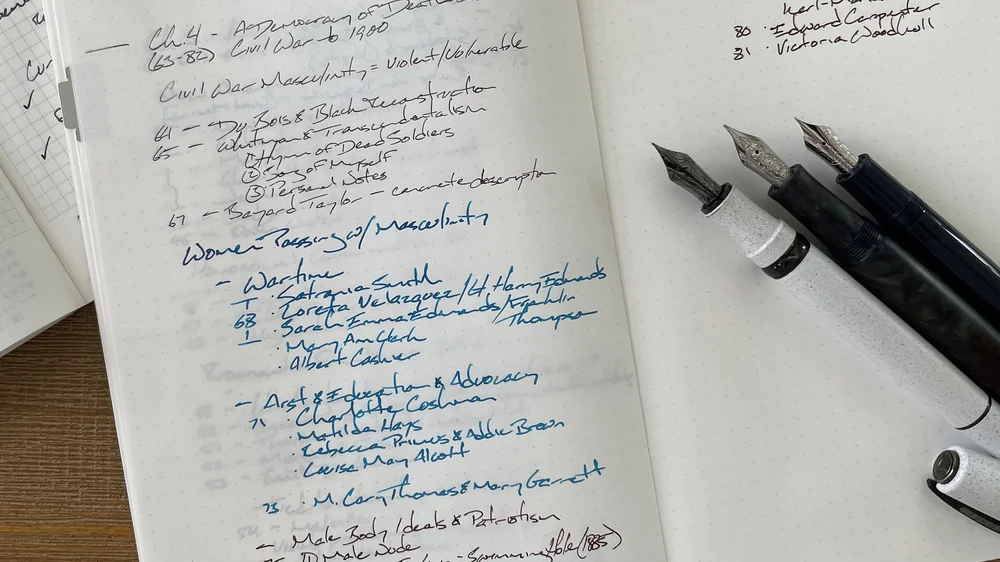 Ch. 4 - A Democracy of Death
(63-82) Civil War to 1900
Civil War Masculinity = Violent/Vulnerable
64 - Du Bois & Black Reconstruction
65 - Whitman & Transcendentalism
① Hymn of Dead Soldiers
② Song of Myself
③ Personal Notes
67 - Bayard Taylor - concrete description
Women Passing w/ Masculinity
- Wartime
· Satronia Smith
68 · Loreta Velazquez/Lt Harry Edwards
· Sarah Emma Edwards/Franklin
Thompson
· Mary Ann Clark
· Albert Cashier
- Arst & Education & Advocacy
71 · Charlotte Coshman
· Matilda Hays
· Rebecca Primus & Addie Brown
· Louisa May Alcott
73 · M. Cary Thomas & Mary Garrett
- Male Body Ideals & Patriotism
① Male Nude
Swimming Hole (1885)
80 · Edward Carpenter
81 · Victoria Woodhull